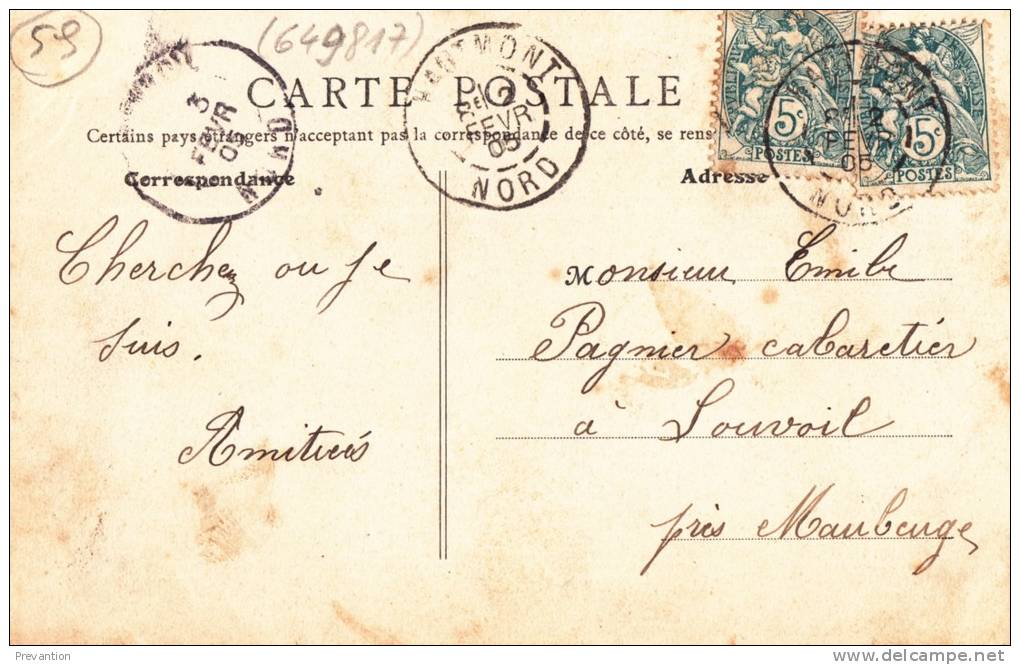 59
(649817)
CARTE POSTALE
Certains pays étrangers n'acceptant pas la correspondance de ce côté, se rens
Correspondance
Adresse
HAUTMONT
2
FEVR
05
NORD
3
FEVR
05
NORD
5c
POSTES
5c
POSTES
FEVR
05
NORD
Cherchez ou je
suis.
Amitiés
Monsieur Emile
Pagnier cabaretier
à Louvoil
près Maubeuge
Prevantion
delcampe.net